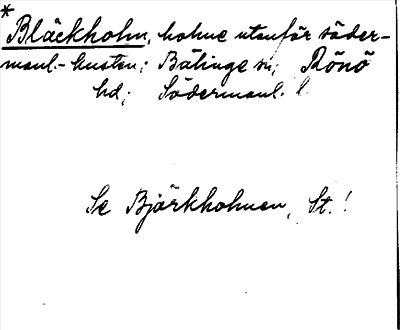 *
Bläckholm, holme utanför söder-
manl.-kusten; Bälinge sn; Rönö
hd; Södermanl. l.
Se Bjärkholmen, St.!